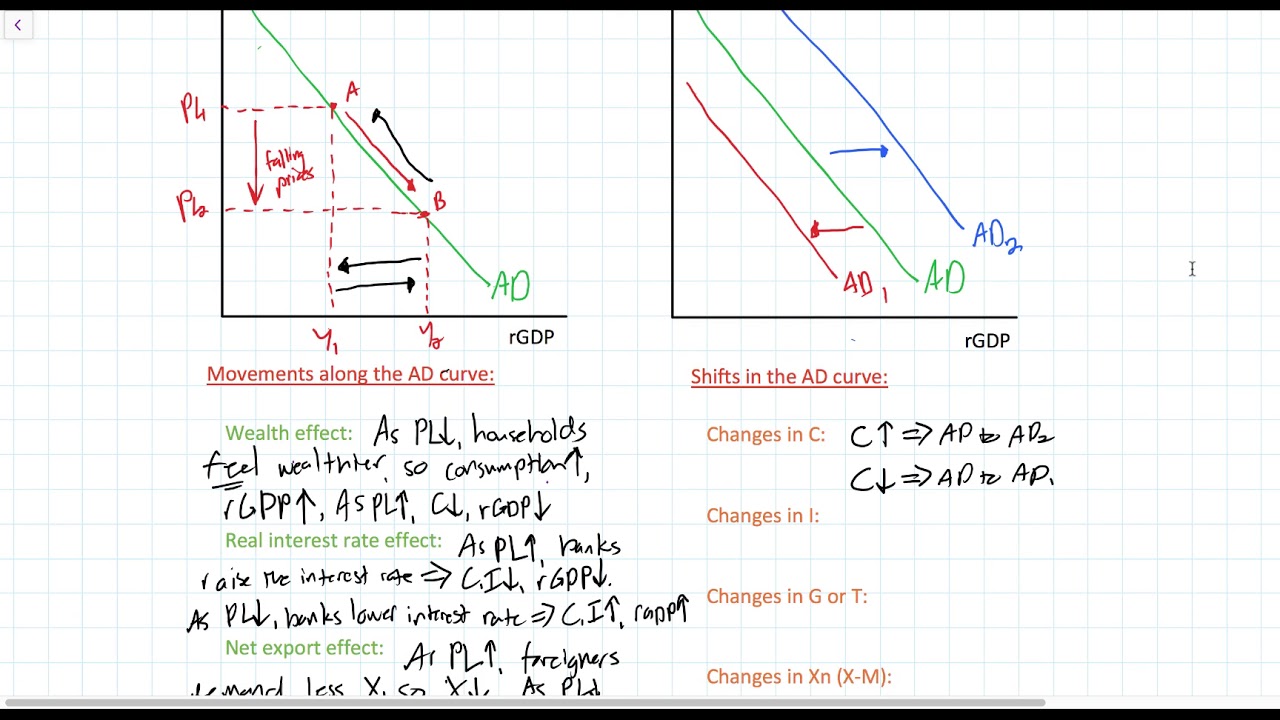 PL1
A
falling
prices
PL2
B
AD
Y1
Y2
rGDP
AD2
AD1
AD
rGDP
Movements along the AD curve:
Wealth effect: As PL↓, households
feel wealthier, so consumption↑,
rGDP↑, As PL↑, C↓, rGDP↓
Real interest rate effect: As PL↑, banks
raise the interest rate ⇒ C,I↓, rGDP↓.
As PL↓, banks lower interest rate ⇒ C,I↑, rGDP↑
Net export effect: As PL↑, foreigners
demand less X, so X↓. As PL↓
Shifts in the AD curve:
Changes in C: C↑ ⇒ AD to AD2
C↓ ⇒ AD to AD1
Changes in I:
Changes in G or T:
Changes in Xn (X-M):